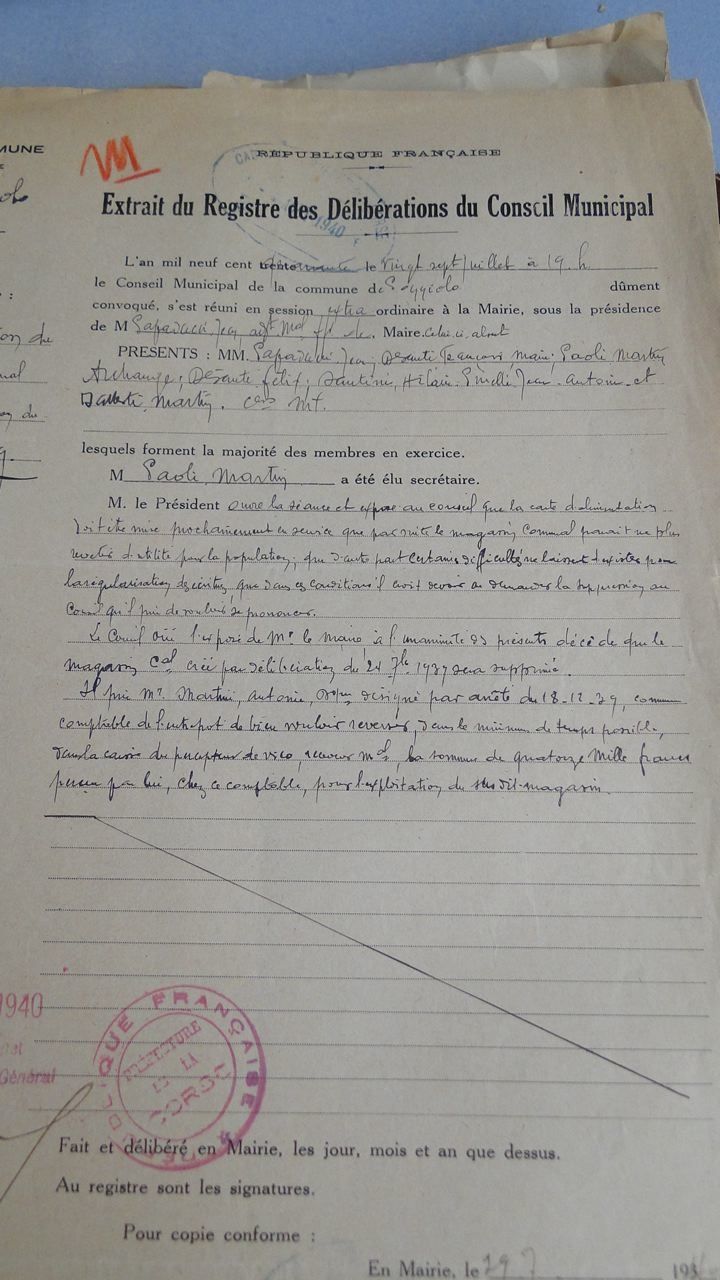 MUNE
RÉPUBLIQUE FRANÇAISE
1940
Extrait du Registre des Délibérations du Conseil Municipal
L'an mil neuf cent quarante le vingt sept juillet à 19 h
le Conseil Municipal de la commune de Poggiolo dûment
convoqué, s'est réuni en session extra ordinaire à la Mairie, sous la présidence
de M Jean Maire.
PRÉSENTS : MM. Jean, Desanti François, Maire; Paoli Martin
Archange; Desanti Félix; Santini, Hilaire. Pinelli Jean. Antoine et
Martin.
lesquels forment la majorité des membres en exercice.
M Paoli Martin a été élu secrétaire.
M. le Président ouvre la séance et expose au conseil que la carte d'alimentation
doit être mise prochainement en service que par suite le magasin Communal parait ne plus
d'utilité pour la population, que d'autre part certaines difficultés ne laissent d'exister pour
la régularisation que dans ces conditions il croit devoir en demander la suppression au
Conseil qu'il prie de vouloir se prononcer.
Le Conseil ouï l'exposé de Mr le Maire à l'unanimité des présents décide que le
magasin Cal créé par délibération du 24 7bre 1939 sera supprimé.
Il prie Mr. Martini, Antoine, désigné par arrêté du 18-12-39, comme
comptable de l'entrepot de bien vouloir reverser, dans le minimum de temps possible,
dans la caisse du percepteur de Vico, receveur Mal, la somme de quatorze mille francs
perçue par lui, chez ce comptable, pour l'exploitation du sus dit-magasin.
1940
Général
RÉPUBLIQUE FRANÇAISE
PRÉFECTURE
DE LA
CORSE
Fait et délibéré en Mairie, les jour, mois et an que dessus.
Au registre sont les signatures.
Pour copie conforme :
En Mairie, le 29 7 193